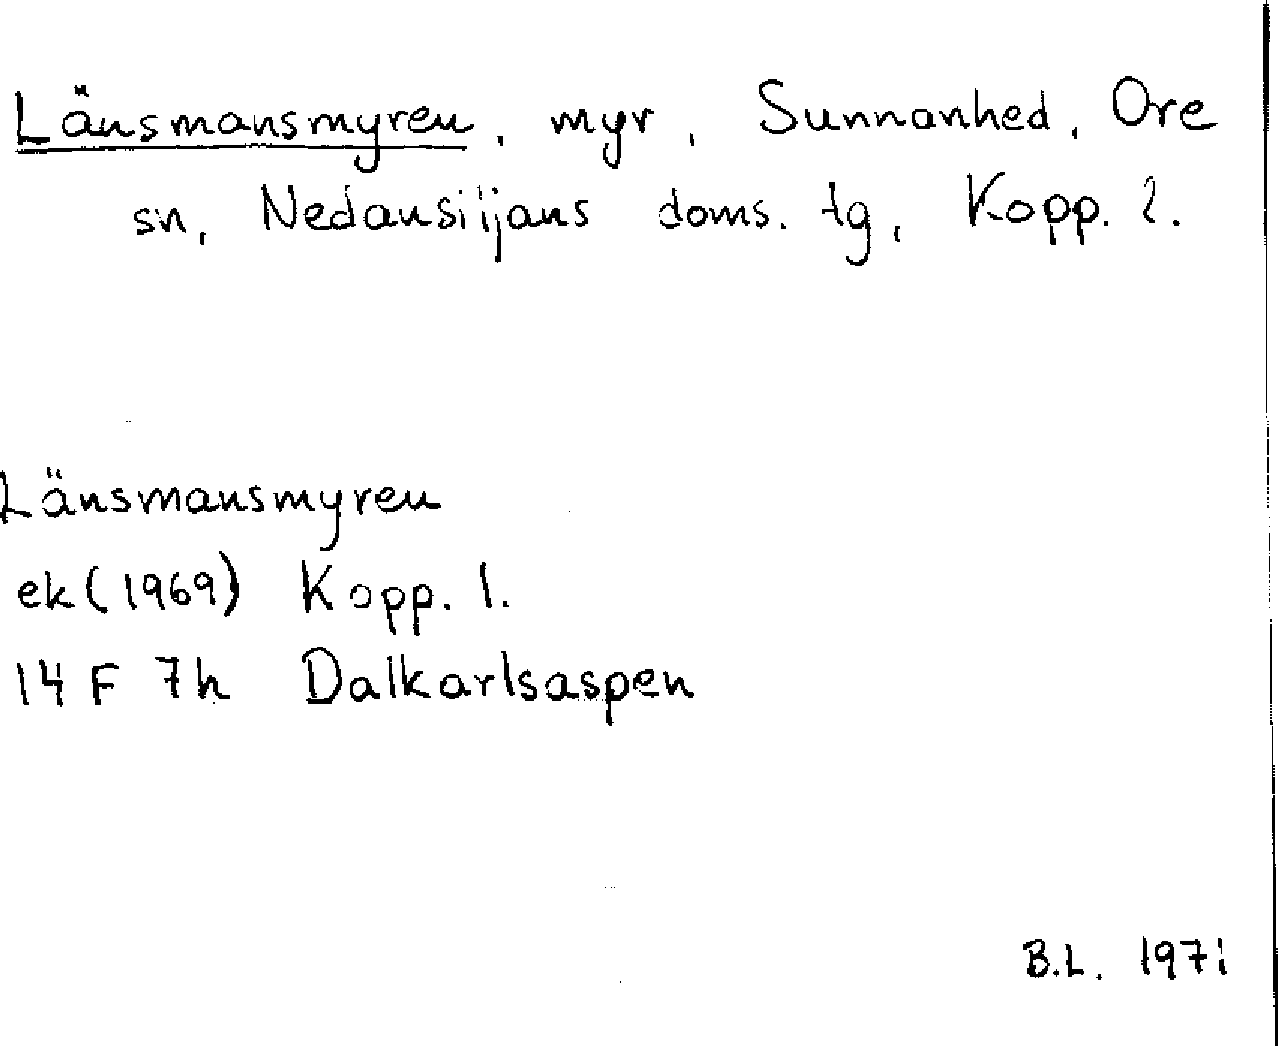 Länsmansmyren, myr, Sunnanhed, Ore
sn, Nedansiljans doms. tg, Kopp. l.
Länsmansmyren
ek (1969) Kopp. l.
14 F 7h Dalkarlsaspen
B.L. 1971